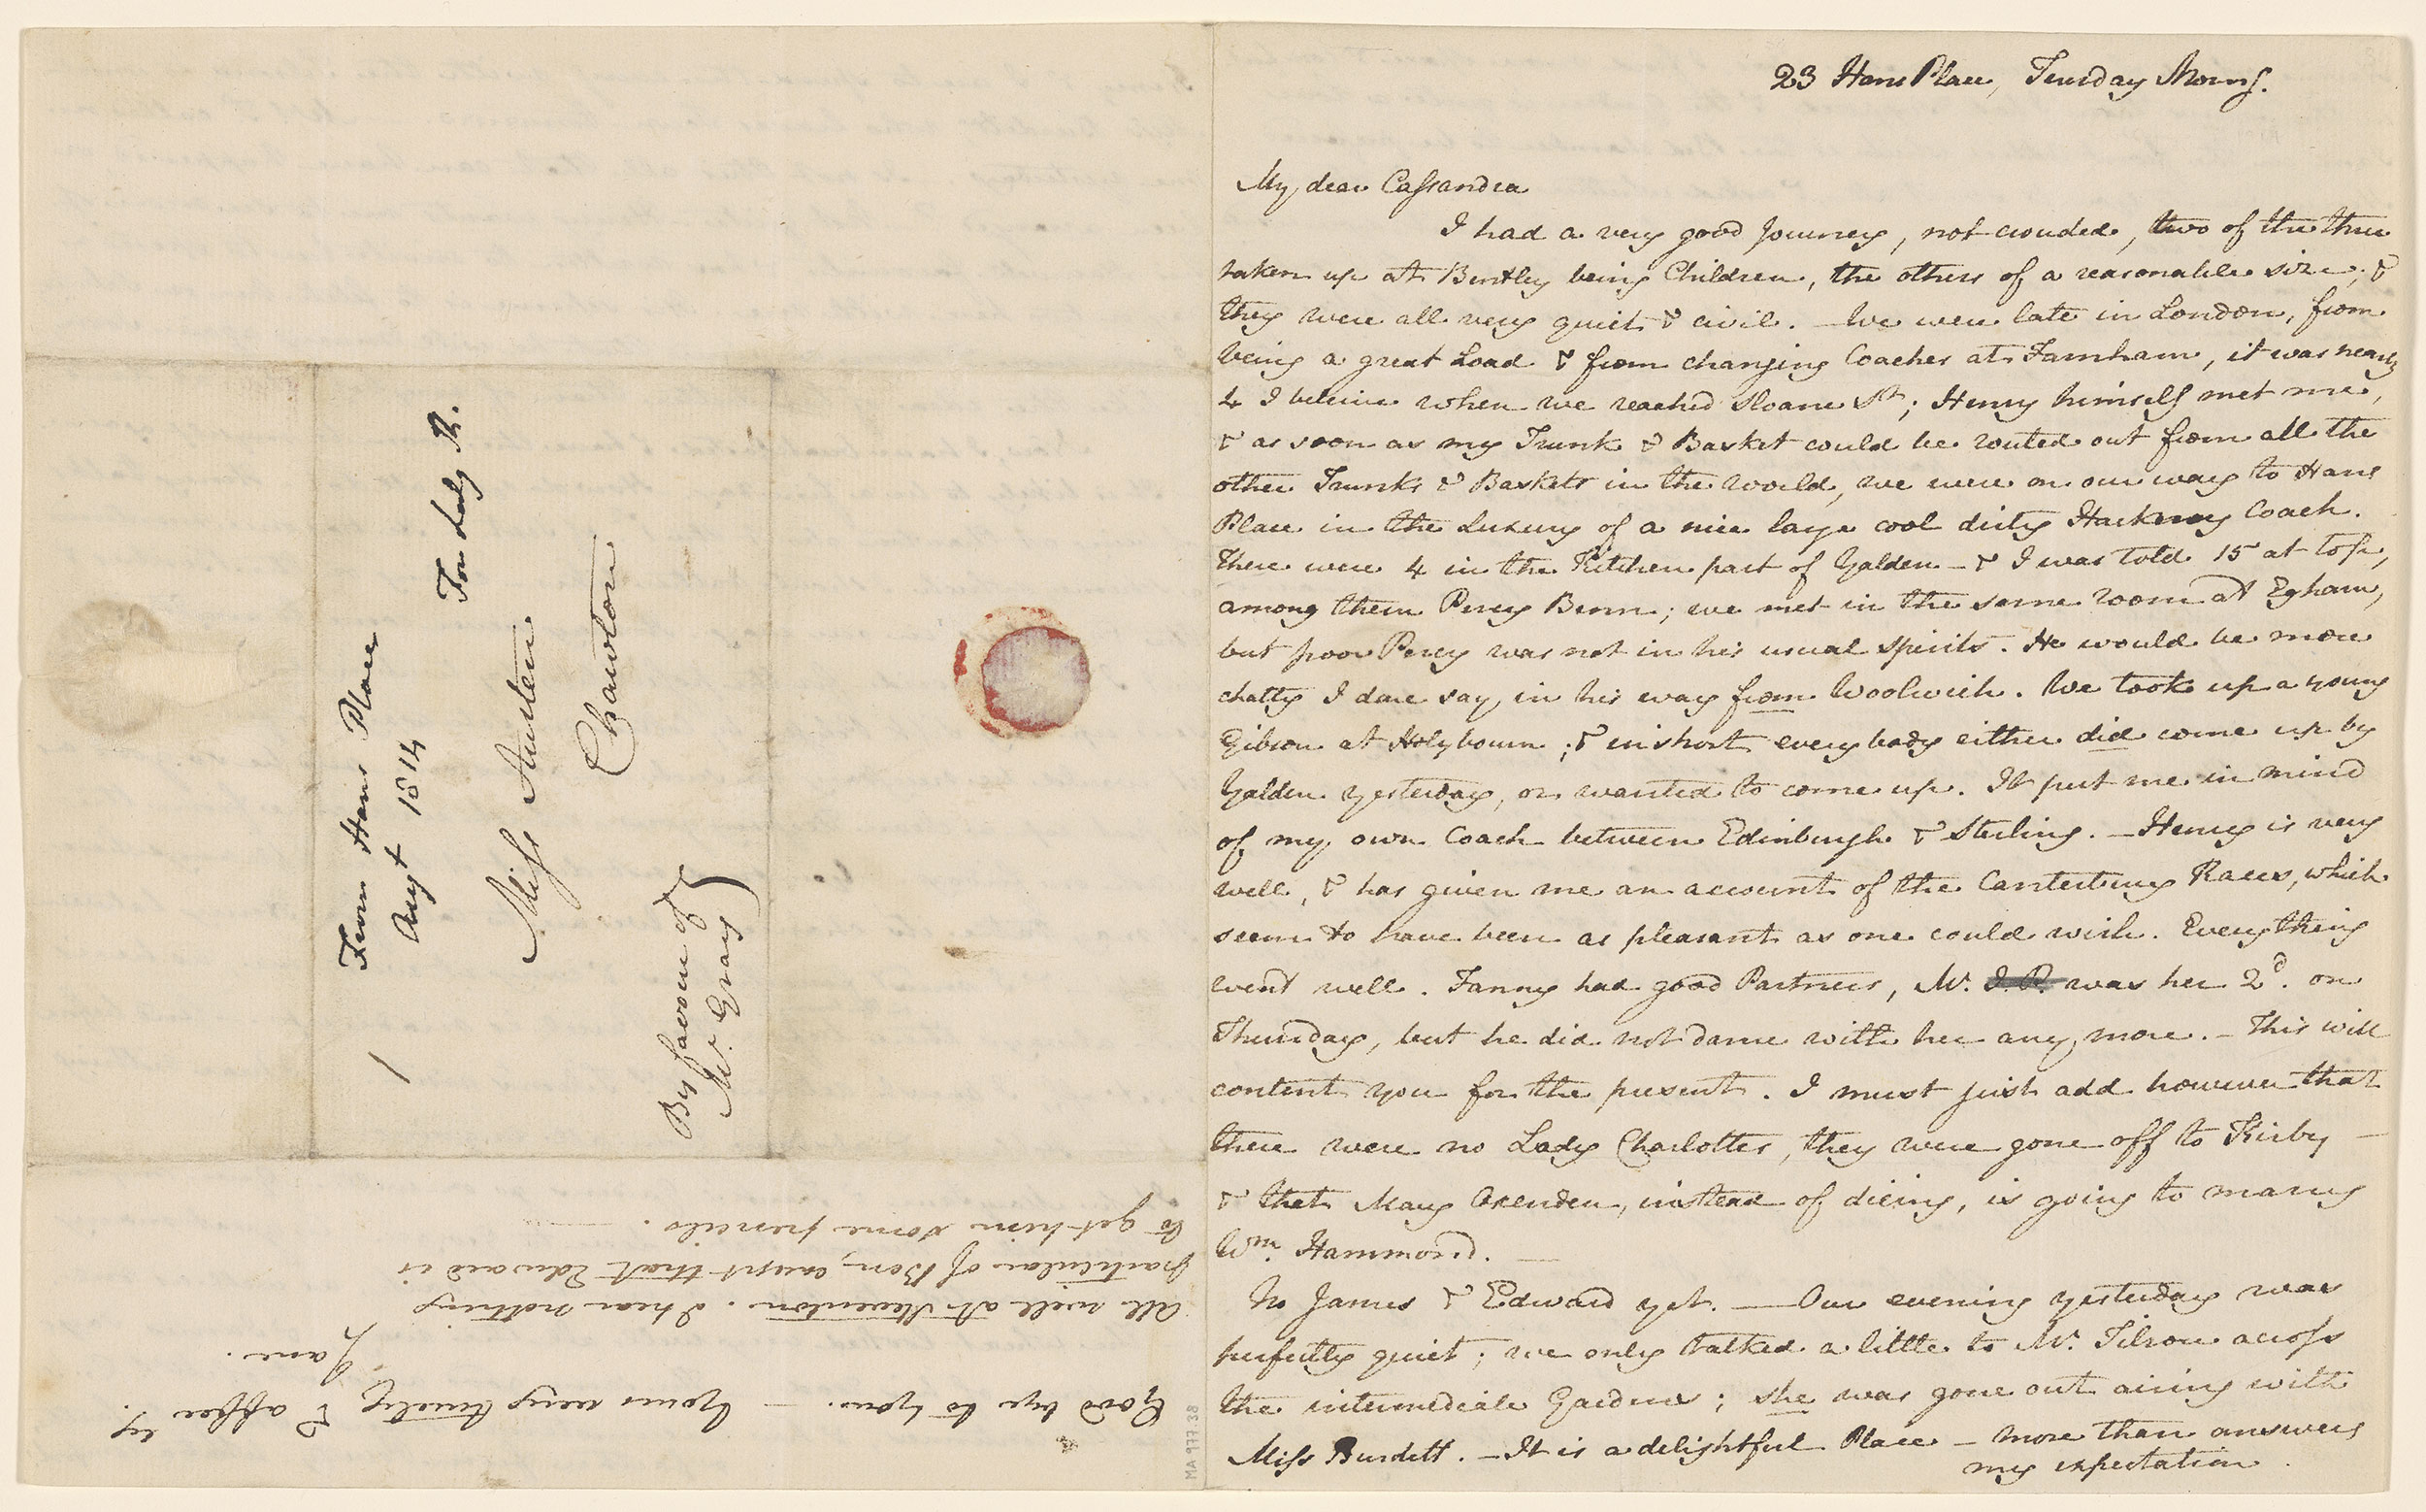 23 Hans Place, Tuesday Morng.
My dear Cassandra
I had a very good Journey, not crouded, two of the three
taken up at Bentley being Children, the others of a reasonable size; &
they were all very quiet & civil. — We were late in London, from
being a great Load & from changing Coaches at Farnham, it was nearly
4 I beleive when we reached Sloane St; Henry himself met me,
& as soon as my Trunk & Basket could be routed out from all the
other Trunks & Baskets in the World, we were on our way to Hans
Place in the Luxury of a nice large cool dirty Hackney Coach.
There were 4 in the Kitchen part of Yalden — & I was told 15 at top,
among them Percy Benn; we met in the same room at Egham,
but poor Percy was not in his usual Spirits. He would be more
chatty I dare say, in his way from Woolwich. We took up a young
Gibson at Holybourn; & in short everybody either did come up by
Yalden yesterday, or wanted to come up. It put me in mind
of my own Coach between Edinburgh & Sterling. — Henry is very
well, & has given me an account of the Canterbury Races, which
seem to have been as pleasant as one could wish. Everything
went well. Fanny had good Partners, Mr. J. P. was her 2d. on
Thursday, but he did not dance with her any more. — This will
content you for the present. I must just add however that
there were no Lady Charlottes, they were gone off to Kirby —
& that Mary Oxenden, instead of dieing, is going to marry
Wm. Hammond. —
No James & Edward yet. — Our evening yesterday was
perfectly quiet; we only talked a little to Mr. Tilson across
the intermediate Gardens; she was gone out airing with
Miss Burdett. — It is a delightful Place — more than answers
my expectation.
Good bye to You. — Yours very truly & affecly.
Jane.
All well at Steventon. I hear nothing
particular of Ben, except that Edward is
to get him some pencils.
From Hans Place
Augt 1814
For Lady K.
Miss Austen
Chawton
By favour of
Mr. Gray
MA 977 38